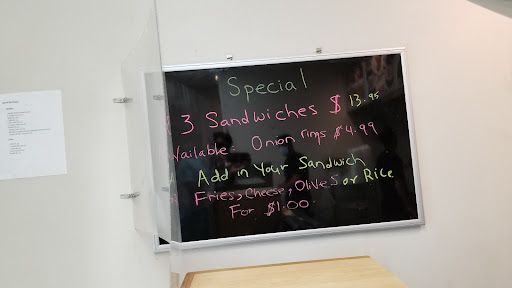 Special
3 Sandwiches $ 13.95
Vailable: Onion rings $4.99
Add in Your Sandwich
Fries, Cheese, Olives or Rice
For $1.00